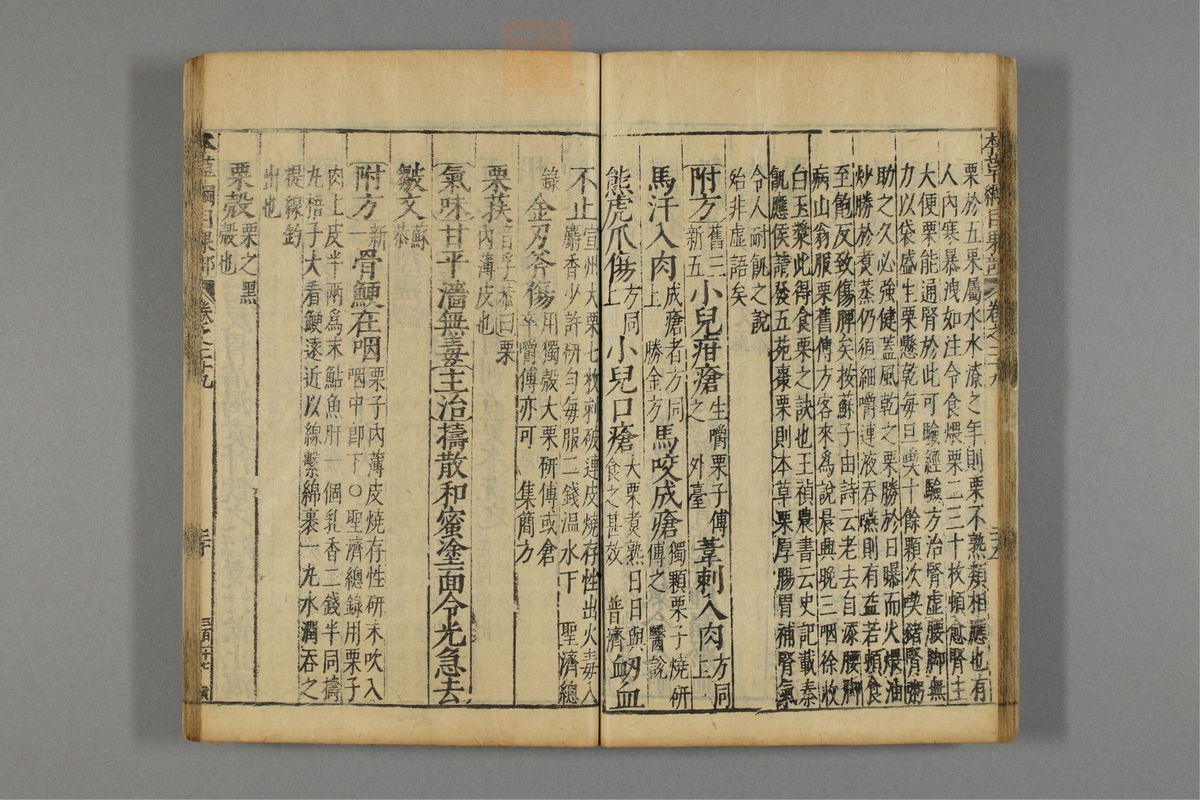 本草綱目果部 卷之二十九
栗於五果屬水水潦之年則栗不熟類相應也有
人內寒暴洩如注令食煨栗二三十枚頓愈腎主
大便栗能通腎於此可驗經驗方治腎虛腰脚無
力以袋盛生栗懸乾每旦喫十餘顆次喫豬腎粥
助之久必強健蓋風乾之栗勝於日曝而火煨油
炒勝於煑蒸仍須細嚼連液吞嚥則有益若頓食
至飽反致傷脾矣按蘇子由詩云老去自添腰脚
病山翁服栗舊傳方客來爲說晨興晚三咽徐收
白玉漿此得食栗之訣也王禎農書云史記載秦
飢應侯請發五苑棗栗則本草栗厚腸胃補腎氣
令人耐飢之說
殆非虛語矣
附方舊三新五小兒疳瘡生嚼栗子傅之 外臺葦刺入肉方同上
馬汗入肉成瘡者方同上 勝金方馬咬成瘡獨顆栗子燒研傅之 醫說
熊虎爪傷方同上小兒口瘡大栗煑熟日日與食之甚效 普濟衂血
不止宣州大栗七枚刺破連皮燒存性出火毒入麝香少許研勻每服二錢温水下 聖濟總
錄金刃斧傷用獨殼大栗研傅或倉卒嚼傅亦可 集簡方
栗荴音孚恭曰栗內薄皮也
氣味甘平濇無毒主治擣散和蜜塗面令光急去
皺文蘇恭
附方新一骨鯁在咽栗子內薄皮燒存性研末吹入咽中即下○聖濟總錄用栗子
肉上皮半兩爲末鮎魚肝一個乳香二錢半同擣
丸梧子大看鯁遠近以線繫綿裹一丸水潤吞之
提線釣
出也
栗殼栗之黑殼也
本草綱目果部 卷之二十九